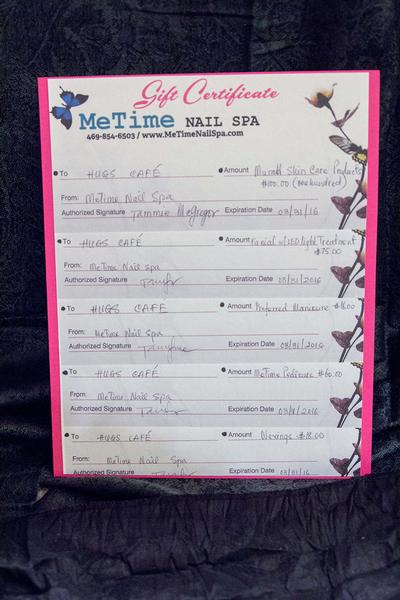 Gift Certificate
MeTime NAIL SPA
469-854-6503 / www.MeTimeNailSpa.com
To HUGS CAFÉ Amount Murad Skin Care Products
$100.00 (one hundred)
From: MeTime Nail Spa
Authorized Signature Tammie McGregor Expiration Date 08/31/16
To HUGS CAFÉ Amount Facial w/LED light Treatment
$75.00
From: MeTime Nail Spa
Authorized Signature Expiration Date 08/31/2016
To HUGS CAFÉ Amount Preferred Manicure
From: MeTime Nail Spa
Authorized Signature Expiration Date 08/31/2016
To HUGS CAFÉ Amount MeTime Pedicure $60.00
From: MeTime Nail Spa
Authorized Signature Expiration Date 2016
To HUGS CAFÉ Amount $18.00
From: MeTime Nail Spa
Authorized Signature Expiration Date 08/31/16